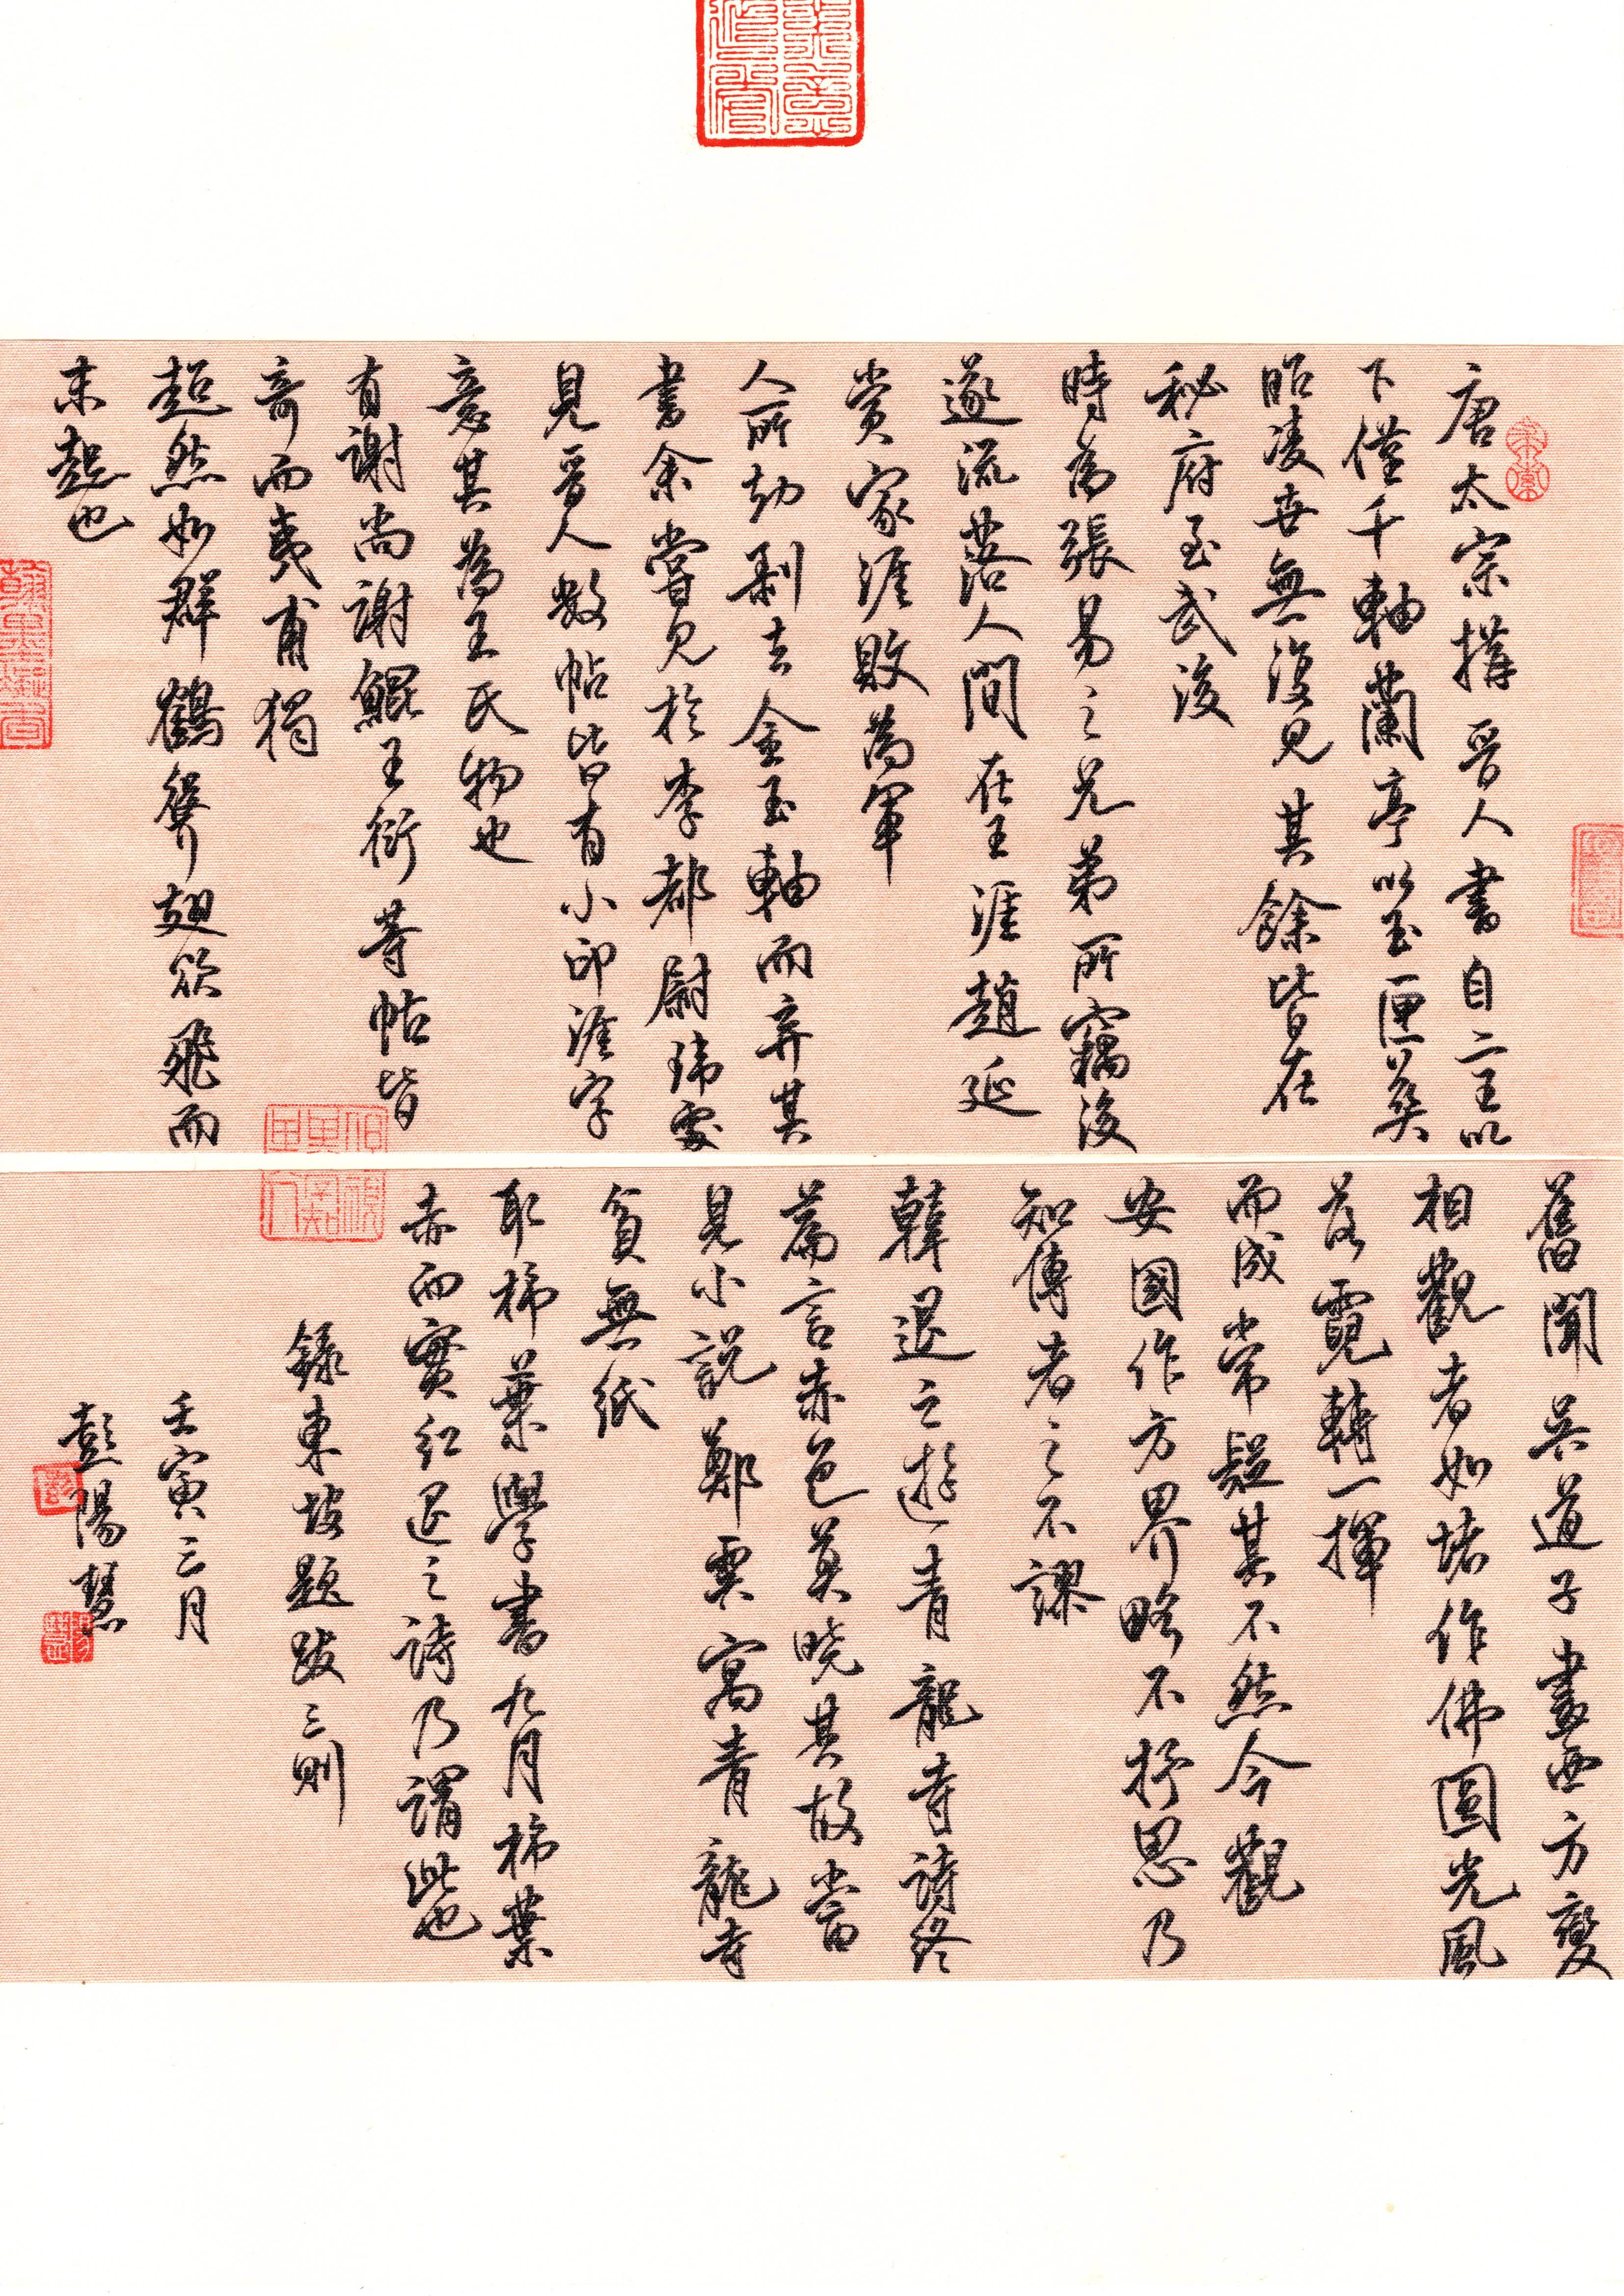 唐太宗搆晉人書自二王以
下僅千軸蘭亭以玉匣葬
昭凌世無復見其餘皆在
秘府至武後
時為張易之兄弟所竊後
遂流落人間在王涯趙延
賞家涯敗為軍
人所劫剝去金玉軸而弃其
書余嘗見於李都尉瑋處
見晉人數帖皆有小印涯字
意其為王氏物也
有謝尚謝鯤王衍等帖皆
奇而夷甫獨
超然如群鶴聳翅欲飛而
未起也
舊聞吳道子畫西方變
相觀者如堵作佛圓光風
落霓轉一揮
而成常疑其不然今觀
安國作方界略不抒思乃
知傳者之不謬
韓退之遊青龍寺詩終
篇言赤色莫曉其故嘗
見小說鄭虔寓青龍寺
貧無紙
取柿葉學書九月柿葉
赤而實紅退之詩乃謂此也
錄東坡題跋三則
壬寅三月
彭陽慧